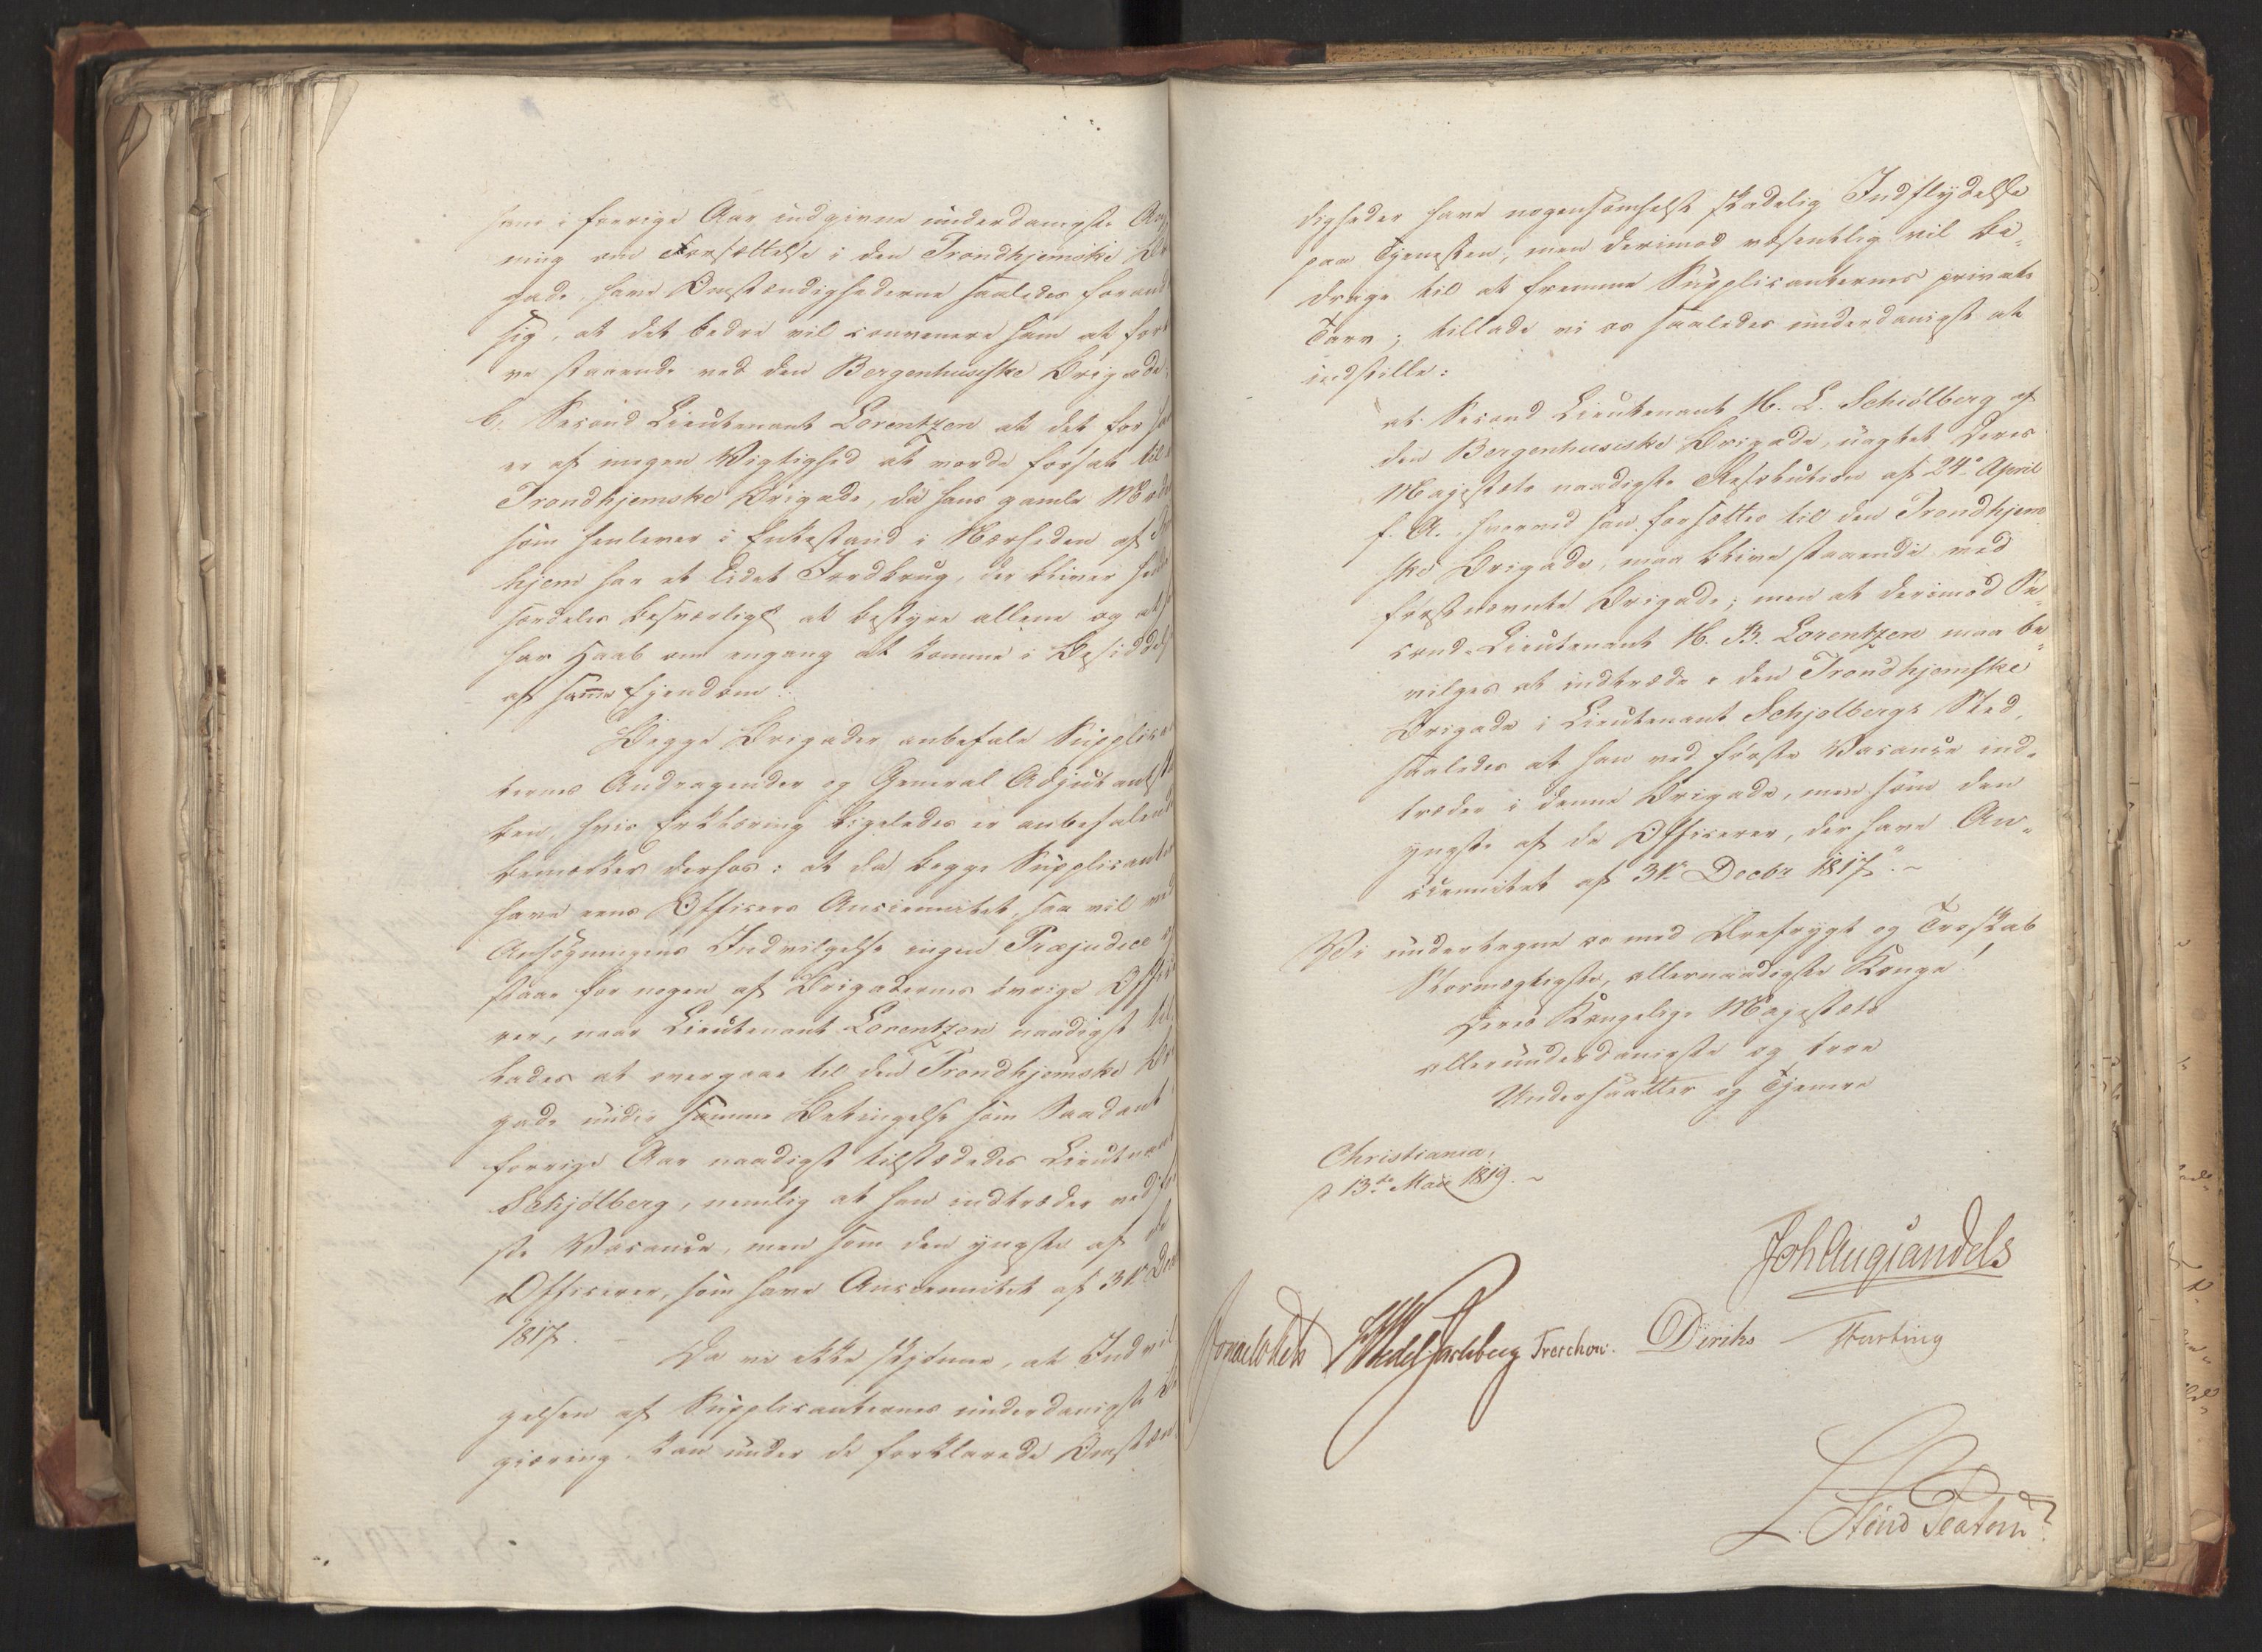 hans i forrige Aar indgivne underdanigste
ning om Forsættelse i den Trondhjemske
gade, have Omstændighederne saaledes forand
sig, at det bedre vil convenere ham at for
staaende ved den Bergenhusiske Brigade;
b, Second Lieutenant Lorentzen at det for
er af megen Vigtighed at vorde forsat til
Trondhjemske Brigade, da hans gamle Mod
som henlever i Enkestand i Nærheden af
hjem har et lidet Jordbrug, der bliver hende
særdeles besværligt at bestyre allene og at
har Haab om engang at komme i Besiddelse
af samme Ejendom:
Begge Brigader anbefale Supplican
ternes Andragender og General Adjutant
ten, hvis Erklæring ligeledes er anbefalende
bemærker derhos: at da begge Supplicanter
have eens Officers Anciennitet, saa vil ved
Ansøgningens Indvilgelse ingen Præjudice
staae for nogen af Brigadernes øvrige Offi
rer, naar Lieutenant Lorentzen naadigst til
lades at overgaae til den Trondhjemske
gade under samme Betingelse som Saadant
forrige Aar naadigst tilstædedes Lieutnant
Schjölberg, nemlig at han indtræder ved
ste Vacance, men som den yngste af de
Officerer, som have Anciennitet af 31te Dec
1817. –
Da vi ikke skjønne, at Indvil
gelsen af Supplicanternes underdanigste
giæring, kan under de forklarede Omstæn
digheder have nogensomhelst skadelig Indflydelse
paa Tjenesten, men derimod væsentlig vil bi-
drage til at fremme Supplicanternes private
Tarv; tillade vi os saaledes underdanigst at
indstille:
at Second Lieutenant H. L. Schiölberg af
den Bergenhusiske Brigade, uagtet Deres
Majestæts naadigste Resolution af 24de April
f. A., hvorved han forsættes til den Trondhjem
ske Brigade, maa blive staaende ved
førstnævnte Brigade; men at derimod Se-
cond-Lieutenant H. B. Lorentzen maa be-
vilges at indtræde i den Trondhjemske
Brigade i Lieutenant Schjølbergs Sted,
saaledes at han ved første Vacance ind-
træder i denne Brigade, men som den
yngste af de Officerer, der have An-
ciennitet af 31te Decbr 1817." ~
Vi undertegne os med Ærefrygt og Troskab
Stormægtigste, allernaadigste Konge!
Deres Kongelige Majestæts
allerunderdanigste og troe
Undersaatter og Tjenere
Christiania,
d 13de Maii 1819. ~
Joh Aug Sandels
Jonas Collett Wedel Jarlsberg Treschow. Diriks Fasting
L.